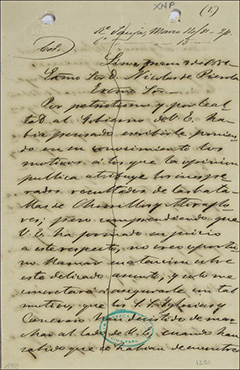 XNP (1)
Lima, Marzo 9 de 1881
Exmo Sor. D. Nicolas de Pierola
Exmo Sor.
Por patriotismo y por leal
tad al Gobierno de V. E. ha
bia pensado escribirle ponien
do en su conocimiento los
motivos á los que la opinion
publica atribuye los inespe
rados resultados de las bata
llas de Chorrillos y Miraflo
res; pero comprendiendo que
V. E. ha formado su juicio
á este respecto, no creo oportu
no llamar su atencion sobre
este delicado asunto, y solo me
á asegurarle con tal
motivo, que los S. S. Iglesias y
han decidido de mar
char al lado de V. E. cuando han
sabido que se habian de